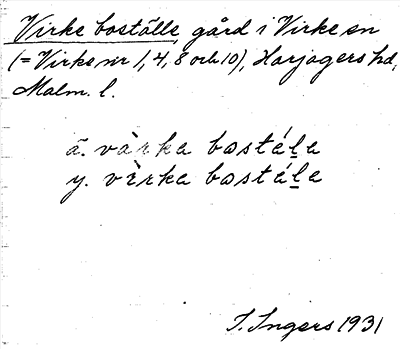 Virke boställe, gård i Virke sn
(= Virke nr 1, 4, 8 och 10), Harjagers hd,
Malm. l.
ä. vàrka bostála
y. vìrka bostála
I. Ingers 1931